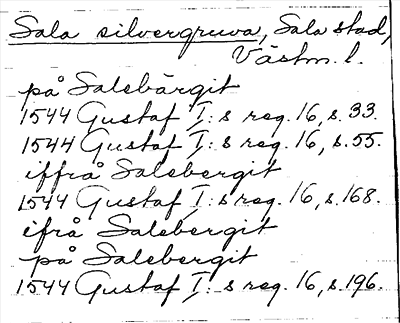 Sala silvergruva, Sala stad,
Västm. l.
på Salebärgit
1544 Gustaf I:s reg. 16, s. 33.
1544 Gustaf I:s reg. 16, s. 55.
iffrå Salebergit
1544 Gustaf I:s reg. 16, s. 168.
ifrå Salebergit
på Salebergit
1544 Gustaf I:s reg. 16, s. 196.